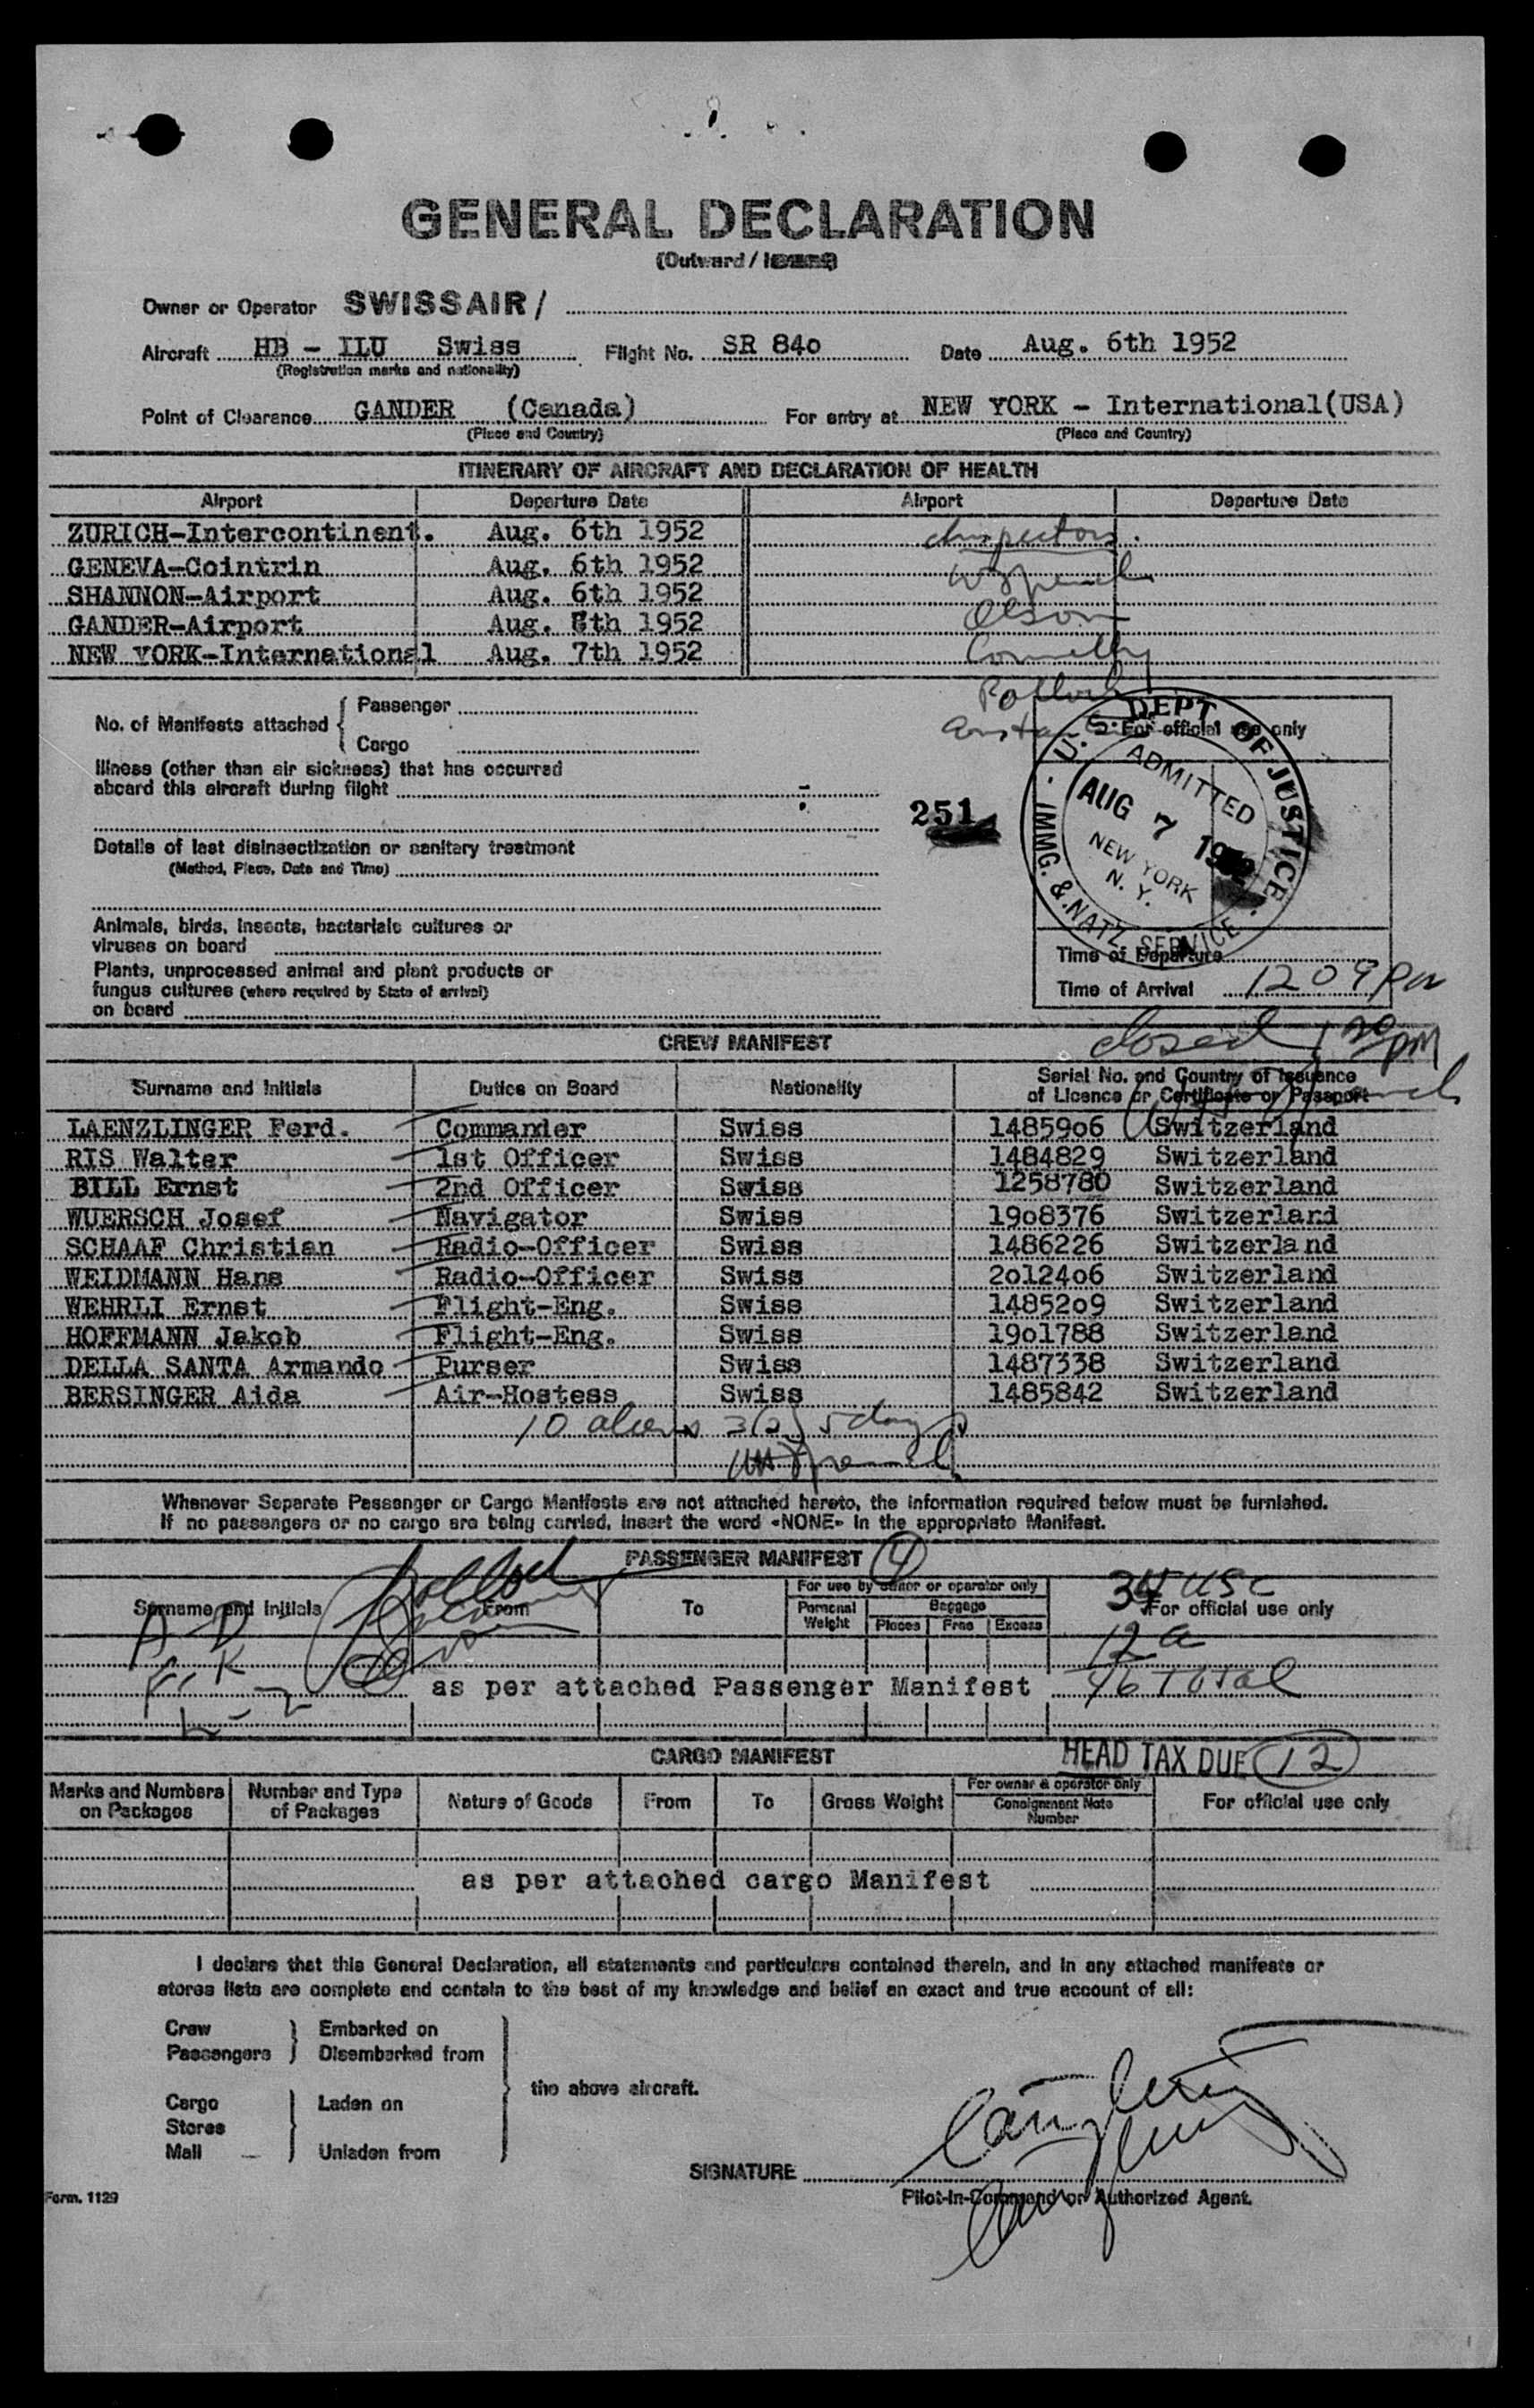 GENERAL DECLARATION
(Outward /
Owner or Operator SWISSAIR /
Aircraft HB - ILU Swiss Flight No. SR 84o Date Aug. 6th 1952
(Registration marks and nationality)
Point of Clearance GANDER (Canada) For entry at NEW YORK - International(USA)
(Place and Country) (Place and Country)
ITINERARY OF AIRCRAFT AND DECLARATION OF HEALTH
Airport Departure Date Airport Departure Date
ZURICH-Intercontinent. Aug. 6th 1952 Inspectors
GENEVA-Cointrin Aug. 6th 1952
SHANNON-Airport Aug. 6th 1952 Olson
GANDER-Airport Aug. 6th 1952 Connelly
NEW YORK-International Aug. 7th 1952
Pollock
No. of Manifests attached { Passenger
Cargo
For official use only
Illness (other than air sickness) that has occurred
aboard this aircraft during flight -
251
U.S. DEPT OF JUSTICE
ADMITTED
AUG 7 1952
NEW YORK
N. Y.
IMMG. & NATZ. SERVICE
Details of last disinsectization or sanitary treatment
(Method, Place, Date and Time)
Animals, birds, insects, bacteriale cultures or
viruses on board
Plants, unprocessed animal and plant products or
fungus cultures (where required by State of arrival)
on board
Time of Departure
Time of Arrival 1209 PM
closed 1 30 PM
CREW MANIFEST
Surname and Initials Duties on Board Nationality Serial No. and Country of Issuance
of Licence or Certificate or Passport
LAENZLINGER Ferd. Commander Swiss 14859o6 Switzerland
RIS Walter 1st Officer Swiss 1484829 Switzerland
BILL Ernst 2nd Officer Swiss 1258780 Switzerland
WUERSCH Josef Navigator Swiss 19o8376 Switzerland
SCHAAF Christian Radio-Officer Swiss 1486226 Switzerland
WEIDMANN Hans Radio-Officer Swiss 2o124o6 Switzerland
WEHRLI Ernst Flight-Eng. Swiss 14852o9 Switzerland
HOFFMANN Jakob Flight-Eng. Swiss 19o1788 Switzerland
DELLA SANTA Armando Purser Swiss 1487338 Switzerland
BERSINGER Aida Air-Hostess Swiss 1485842 Switzerland
10 aliens 3(2) 5 days
Whenever Separate Passenger or Cargo Manifests are not attached hereto, the information required below must be furnished.
If no passengers or no cargo are being carried, insert the word «NONE» in the appropriate Manifest.
PASSENGER MANIFEST (4)
Surname and Initials From To For use by owner or operator only
Personal Weight Baggage Pieces Free Excess
34 USC
For official use only
12 a
as per attached Passenger Manifest 46 Total
CARGO MANIFEST HEAD TAX DUE 12
Marks and Numbers on Packages Number and Type of Packages Nature of Goods From To Gross Weight For owner & operator only Consignment Note Number For official use only
as per attached cargo Manifest
I declare that this General Declaration, all statements and particulars contained therein, and in any attached manifests or
stores lists are complete and contain to the best of my knowledge and belief an exact and true account of all:
Crew } Embarked on
Passengers } Disembarked from
the above aircraft.
Cargo Laden on
Stores
Mail Unladen from
SIGNATURE
Pilot-in-Command or Authorized Agent.
Form. 1129